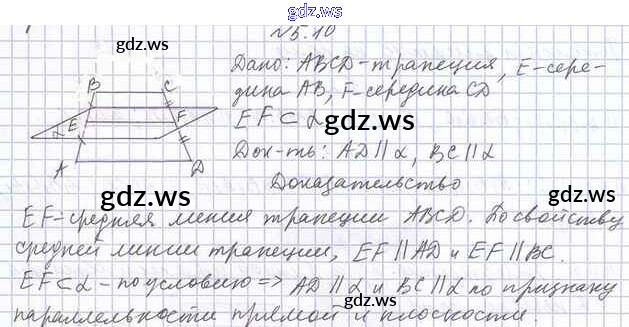 gdz.ws
№5.10
gdz.ws
Дано: ABCD-трапеция, E-сере-
дина AB, F-середина CD
EF⊂α gdz.ws
Док-ть: AD∥α, BC∥α
Доказательство
B C
E F
α
A D
gdz.ws gdz.ws
EF-средняя линия трапеции ABCD. По свойству
средней линии трапеции, EF∥AD и EF∥BC.
EF⊂α-по условию=> AD∥α и BC∥α по признаку
gdz.ws
параллельности прямой и плоскости.